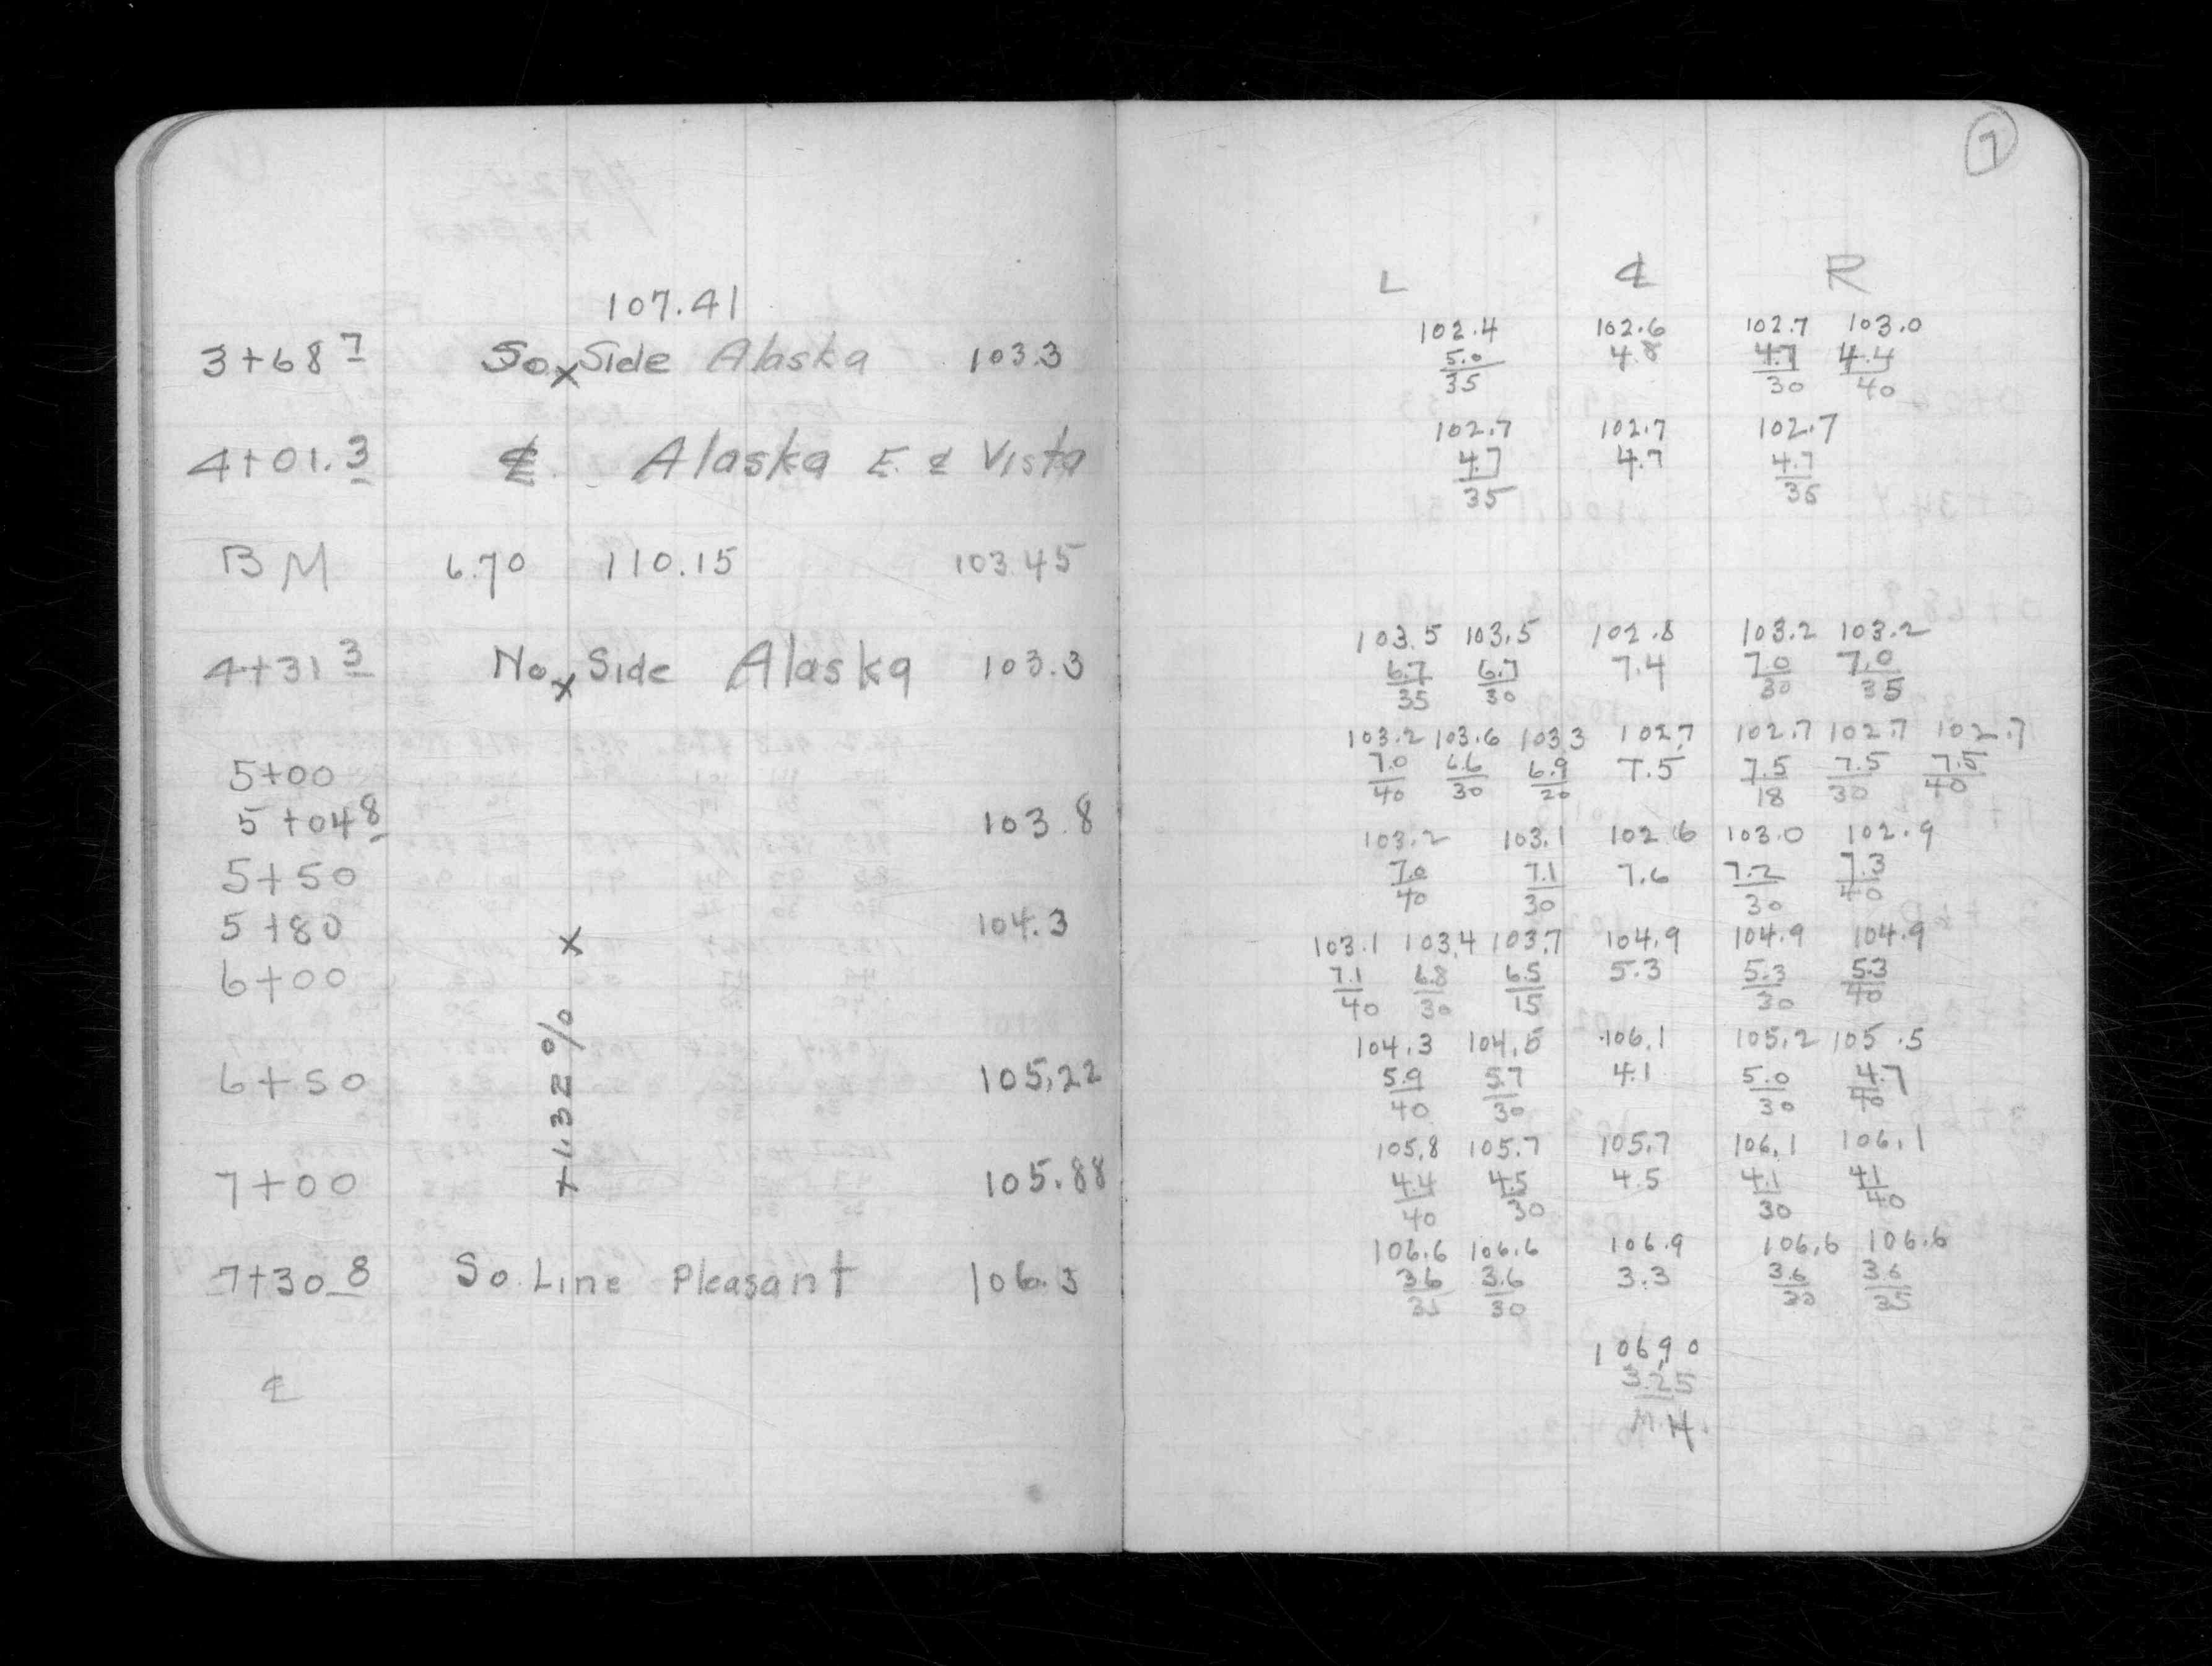 7
L ℄ R
107.41
3+68 7 So. Side Alaska 103.3
102.4 102.6 102.7 103.0
5.0 4.8 4.7 4.4
35 30 40
4+01.3 ℄ Alaska E. ℄ Vista
102.7 102.7 102.7
4.7 4.7 4.7
35 35
BM 6.70 110.15 103.45
4+31 3 No. Side Alaska 103.3
x
103.5 103.5 102.8 103.2 103.2
6.7 6.7 7.4 7.0 7.0
35 30 30 35
5+00
103.2 103.6 103.3 102.7 102.7 102.7 102.7
7.0 6.6 6.9 7.5 7.5 7.5 7.5
40 30 20 18 30 40
5+04 8 103.8
5+50
103.2 103.1 102.6 103.0 102.9
7.0 7.1 7.6 7.2 7.3
40 30 30 40
5+80 x 104.3
6+00
103.1 103.4 103.7 104.9 104.9 104.9
7.1 6.8 6.5 5.3 5.3 5.3
40 30 15 30 40
+1.32%
6+50 105.22
104.3 104.5 106.1 105.2 105.5
5.9 5.7 4.1 5.0 4.7
40 30 30 40
7+00 105.88
105.8 105.7 105.7 106.1 106.1
4.4 4.5 4.5 4.1 4.1
40 30 30 40
7+30 8 So. Line Pleasant 106.3
106.6 106.6 106.9 106.6 106.6
3.6 3.6 3.3 3.6 3.6
35 30 30 35
℄
106.90
3.25
M.H.